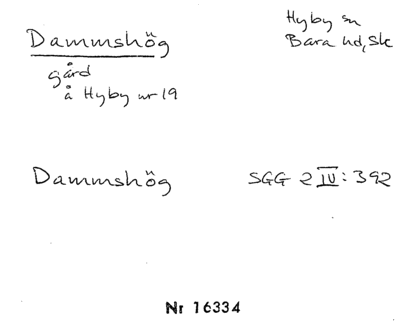 Dammshög
Hyby sn
Bara hd, Sk
gård
å Hyby nr 19
Dammshög
SGG 2 IV: 392
Nr 16334